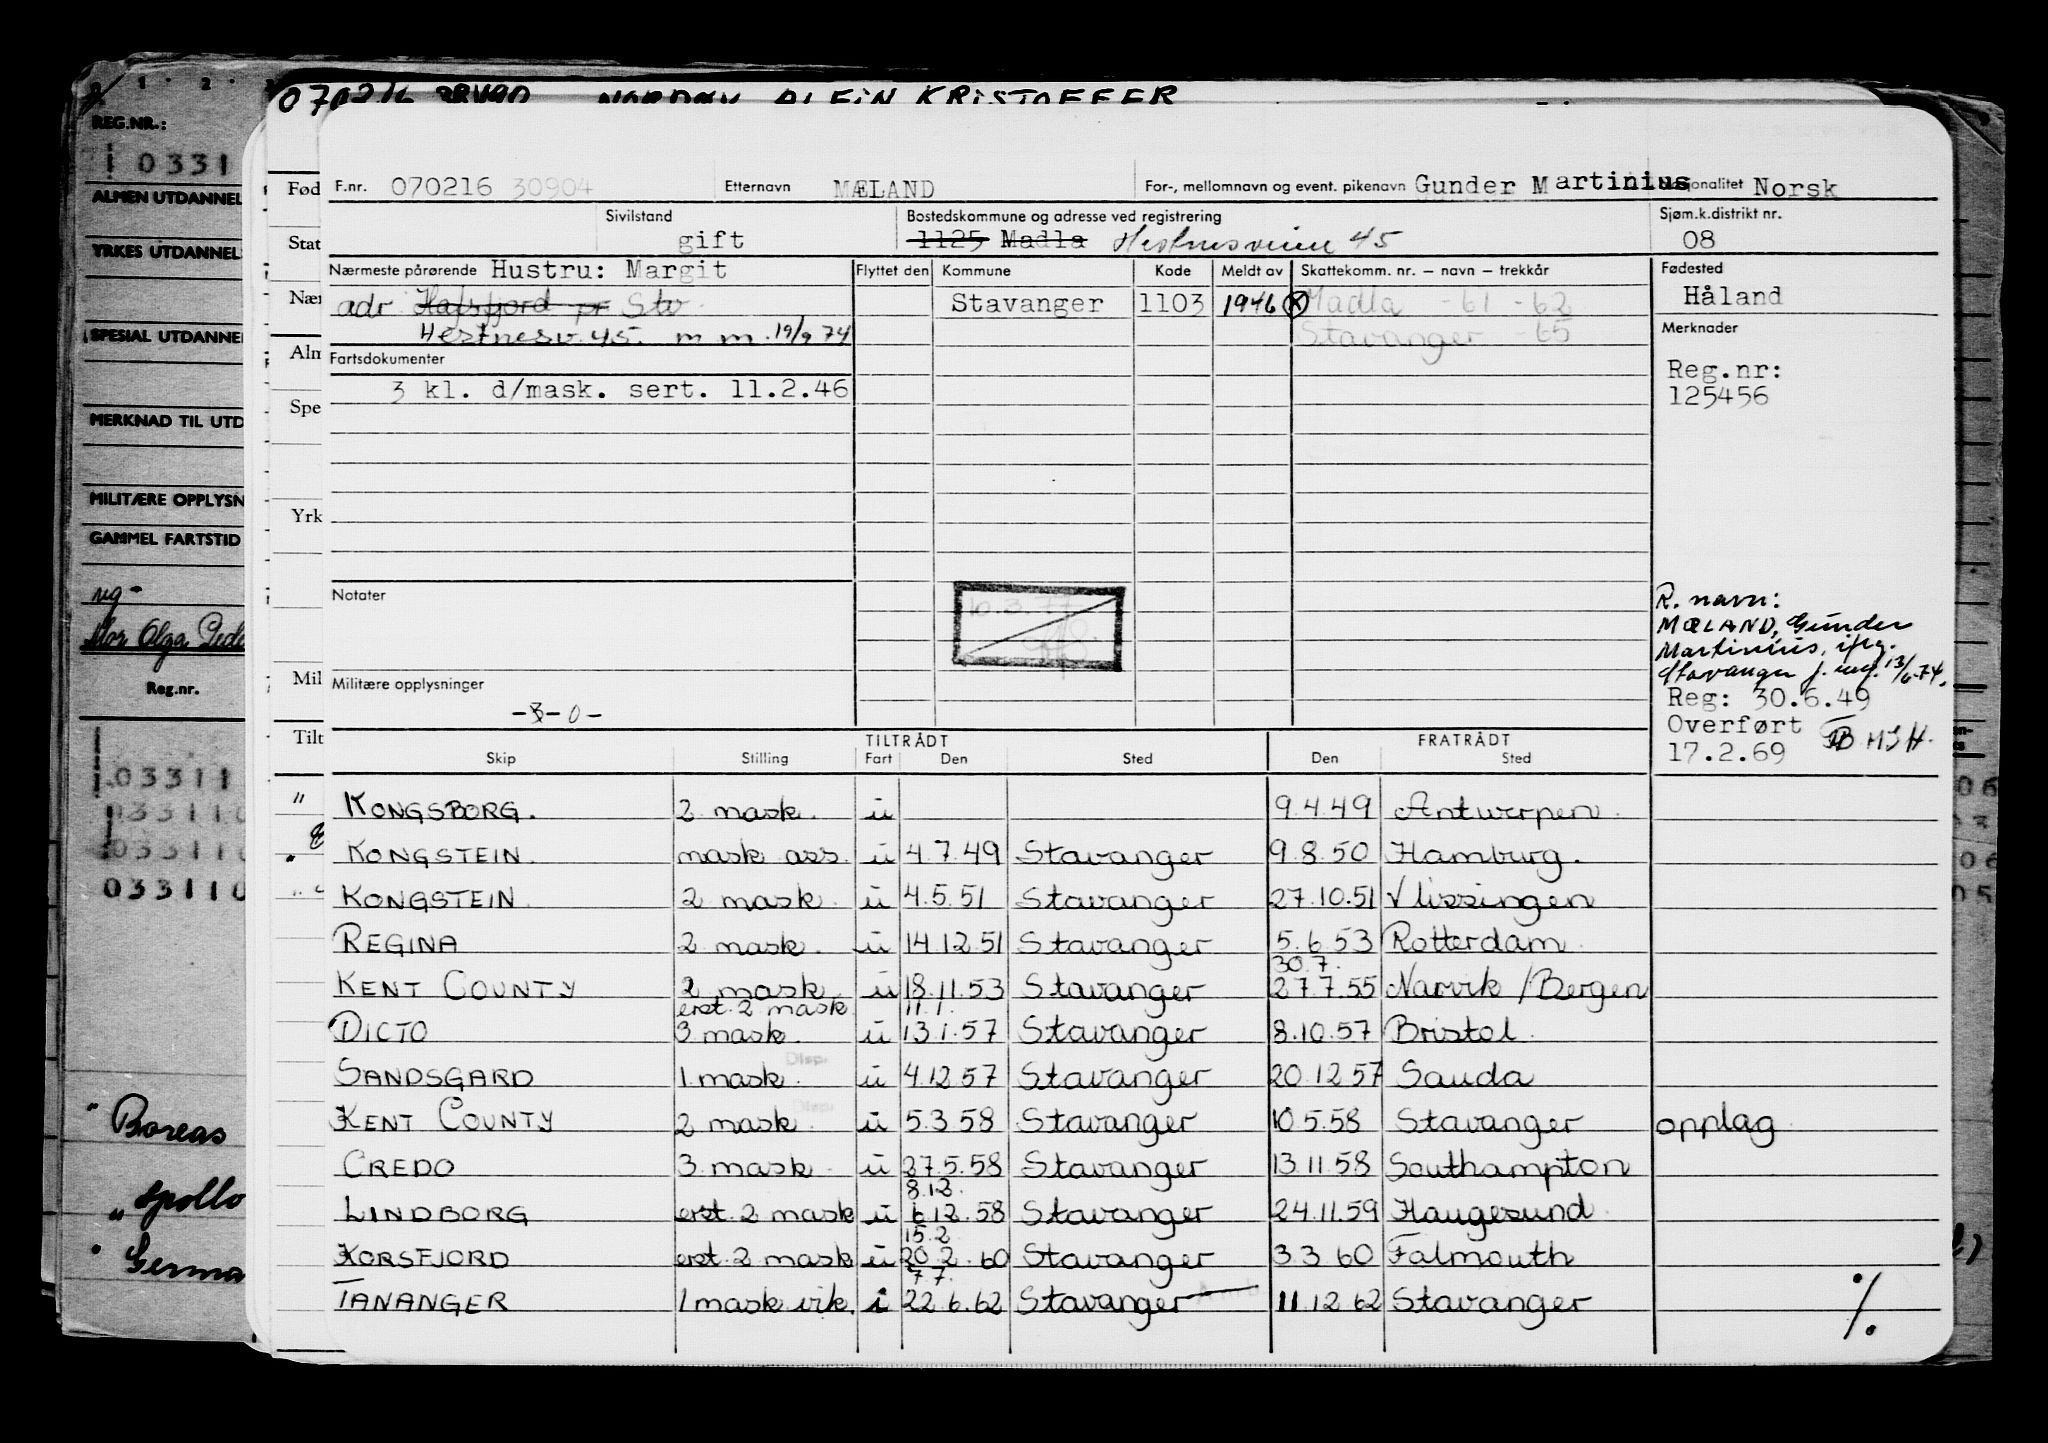 REG.NR.:
0331
ALMEN UTDANNEL
YRKES UTDANNEL
SPESIAL UTDANNE
MERKNAD TIL UTD
MILITÆRE OPPLYSN
GAMMEL FARTSTID
Mor Olga
Reg.nr.
033110
033110
033110
" Boreas
" Apollo
" Germa
Fød
Stat
Nær
Alm
Spe
Yrk
Mil
Tilt
KRISTOFFER
F.nr. 070216 30904 Etternavn MÆLAND For-, mellomnavn og event. pikenavn Gunder Martinius Nasjonalitet Norsk
Sivilstand gift Bostedskommune og adresse ved registrering 1125 Madla Hestnesveien 45 Sjøm.k.distrikt nr. 08
Nærmeste pårørende Hustru: Margit Flyttet den Kommune Kode Meldt av Skattekomm. nr. – navn – trekkår Fødested
adr Hafrsfjord pr Stv Stavanger 1103 1946 Madla -61 -62 Håland
Hestnesv. 45. m m. 19/9 74 Stavanger -65 Merknader
Fartsdokumenter
3 kl. d/mask. sert. 11.2.46
Reg.nr:
125456
Notater
10.3.77
R. navn:
MÆLAND, Gunder
Martinius, iflg.
Stavanger f. reg. 13/6-74.
Militære opplysninger
-3-0-
Reg: 30.6.49
Overført
17.2.69
TILTRÅDT FRATRÅDT
Skip Stilling Fart Den Sted Den Sted
" KONGSBORG. 2 mask. u 9.4.49 Antwerpen.
KONGSTEIN. mask ass. u 4.7.49 Stavanger 9.8.50 Hamburg.
KONGSTEIN. 2 mask. u 4.5.51 Stavanger 27.10.51 Vlissingen
REGINA 2 mask. u 14.12.51 Stavanger 5.6.53 Rotterdam.
30.7.
KENT COUNTY 2 mask. u 18.11.53 Stavanger 27.7.55 Narvik/Bergen
erst. 2 mask. 11.1.
DICTO 3 mask. u 13.1.57 Stavanger 8.10.57 Bristol.
Disp.
SANDSGARD 1 mask. u 4.12.57 Stavanger 20.12.57 Sauda
Disp.
KENT COUNTY 2 mask. u 5.3.58 Stavanger 10.5.58 Stavanger opplag
CREDO 3 mask. u 27.5.58 Stavanger 13.11.58 Southampton
8.12.
LINDBORG erst. 2 mask u 6.12.58 Stavanger 24.11.59 Haugesund.
15.2.
KORSFJORD erst. 2 mask u 20.2.60 Stavanger 3.3.60 Falmouth
7.7.
TANANGER 1 mask vik. i 22.6.62 Stavanger 11.12.62 Stavanger